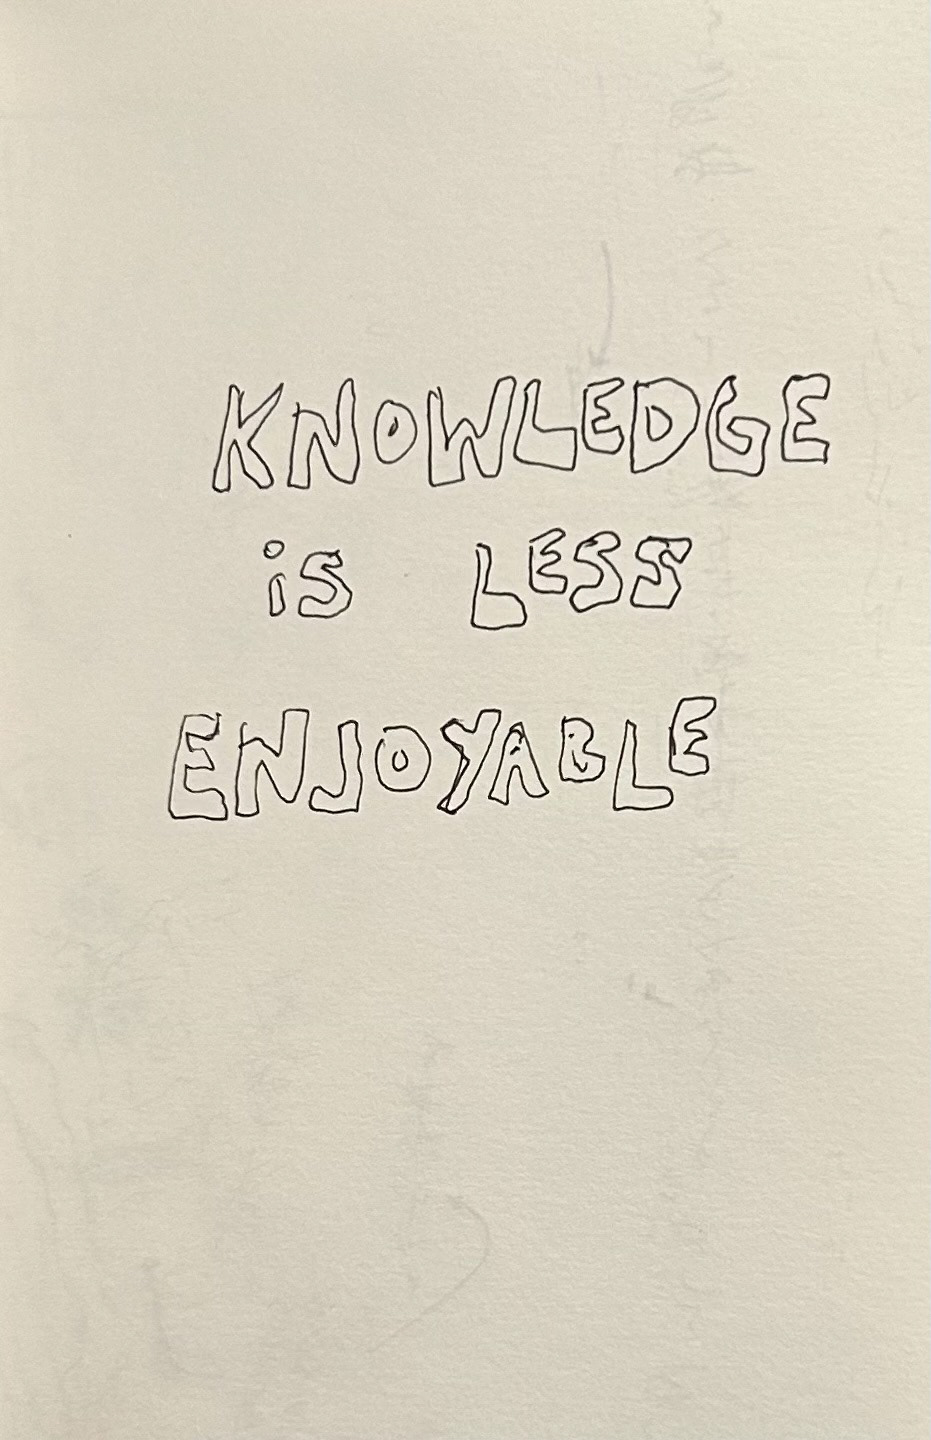 KNOWLEDGE
is LESS
ENJOYABLE